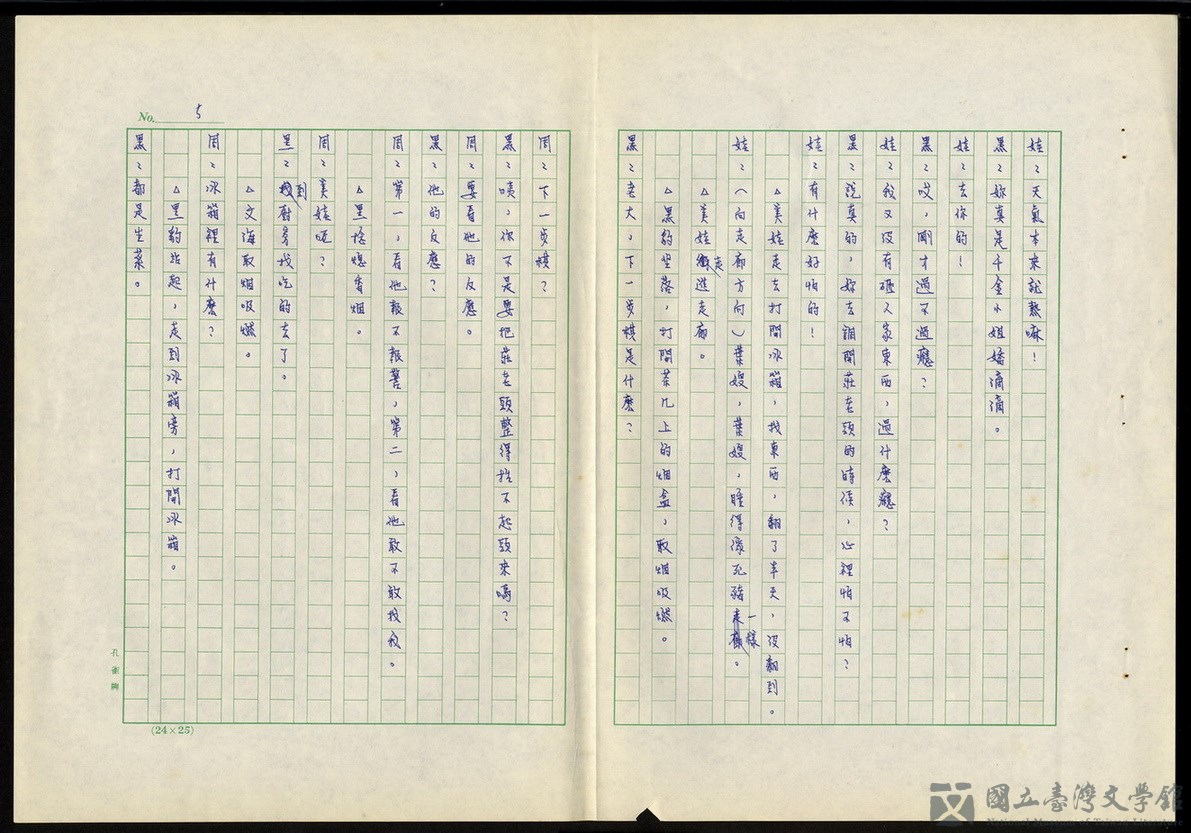 娃：天氣本來就熱嘛！
黑：妳真是千金小姐嬌滴滴。
娃：去你的！
黑：哎，剛才過不過癮？
娃：我又沒有砸人家東西，過什麼癮？
黑：說真的，妳去調開莊老頭的時候，心裡怕不怕？
娃：有什麼好怕的！
△美娃走去打開冰箱，找東西，翻了半天，沒翻到。
娃：（向走廊方向）葉嫂，葉嫂，睡得像死豬一樣。
△美娃走進走廊。
△黑豹坐落，打開茶几上的烟盒，取烟吸燃。
黑：老大，下一步棋是什麼？
周：下一步棋？
黑：咦，你不是要把莊老頭整得抬不起頭來嗎？
周：要看他的反應。
黑：他的反應？
周：第一，看他報不報警，第二，看他敢不敢找我。
△黑捻熄香烟。
周：美娃呢？
黑：到廚房找吃的去了。
△文海取烟吸燃。
周：冰箱裡有什麼？
△黑豹站起，走到冰箱旁，打開冰箱。
黑：都是生菜。
No. 5
孔雀牌
(24×25)
國立臺灣文學館
National Museum of Taiwan Literature